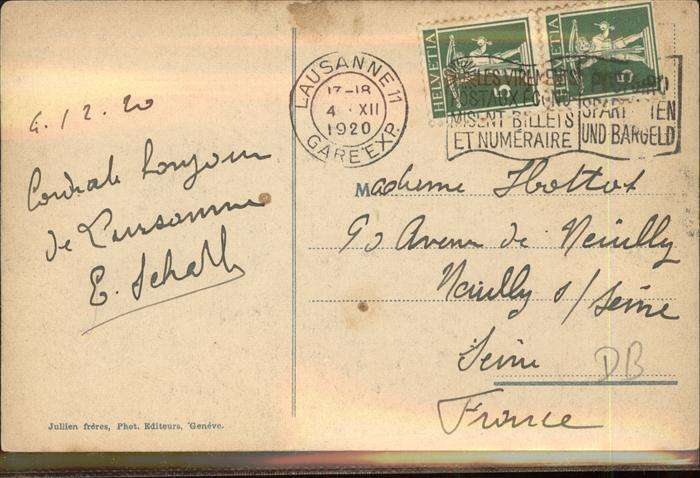 4.12.20
Cordiale bonjour
de Lausanne
E. Schall
Jullien frères, Phot. Editeurs, Genève.
HELVETIA 5
HELVETIA 5
LAUSANNE 11
17-18
4 XII
1920
GARE EXP.
LES VIREMENTS
POSTAUX ÉCONO
MISENT BILLETS
ET NUMÉRAIRE
POSTGIRO
SPART TEN
UND BARGELD
Madame Hottot
90 Avenue de Neuilly
Neuilly s/Seine
Seine
DB
France